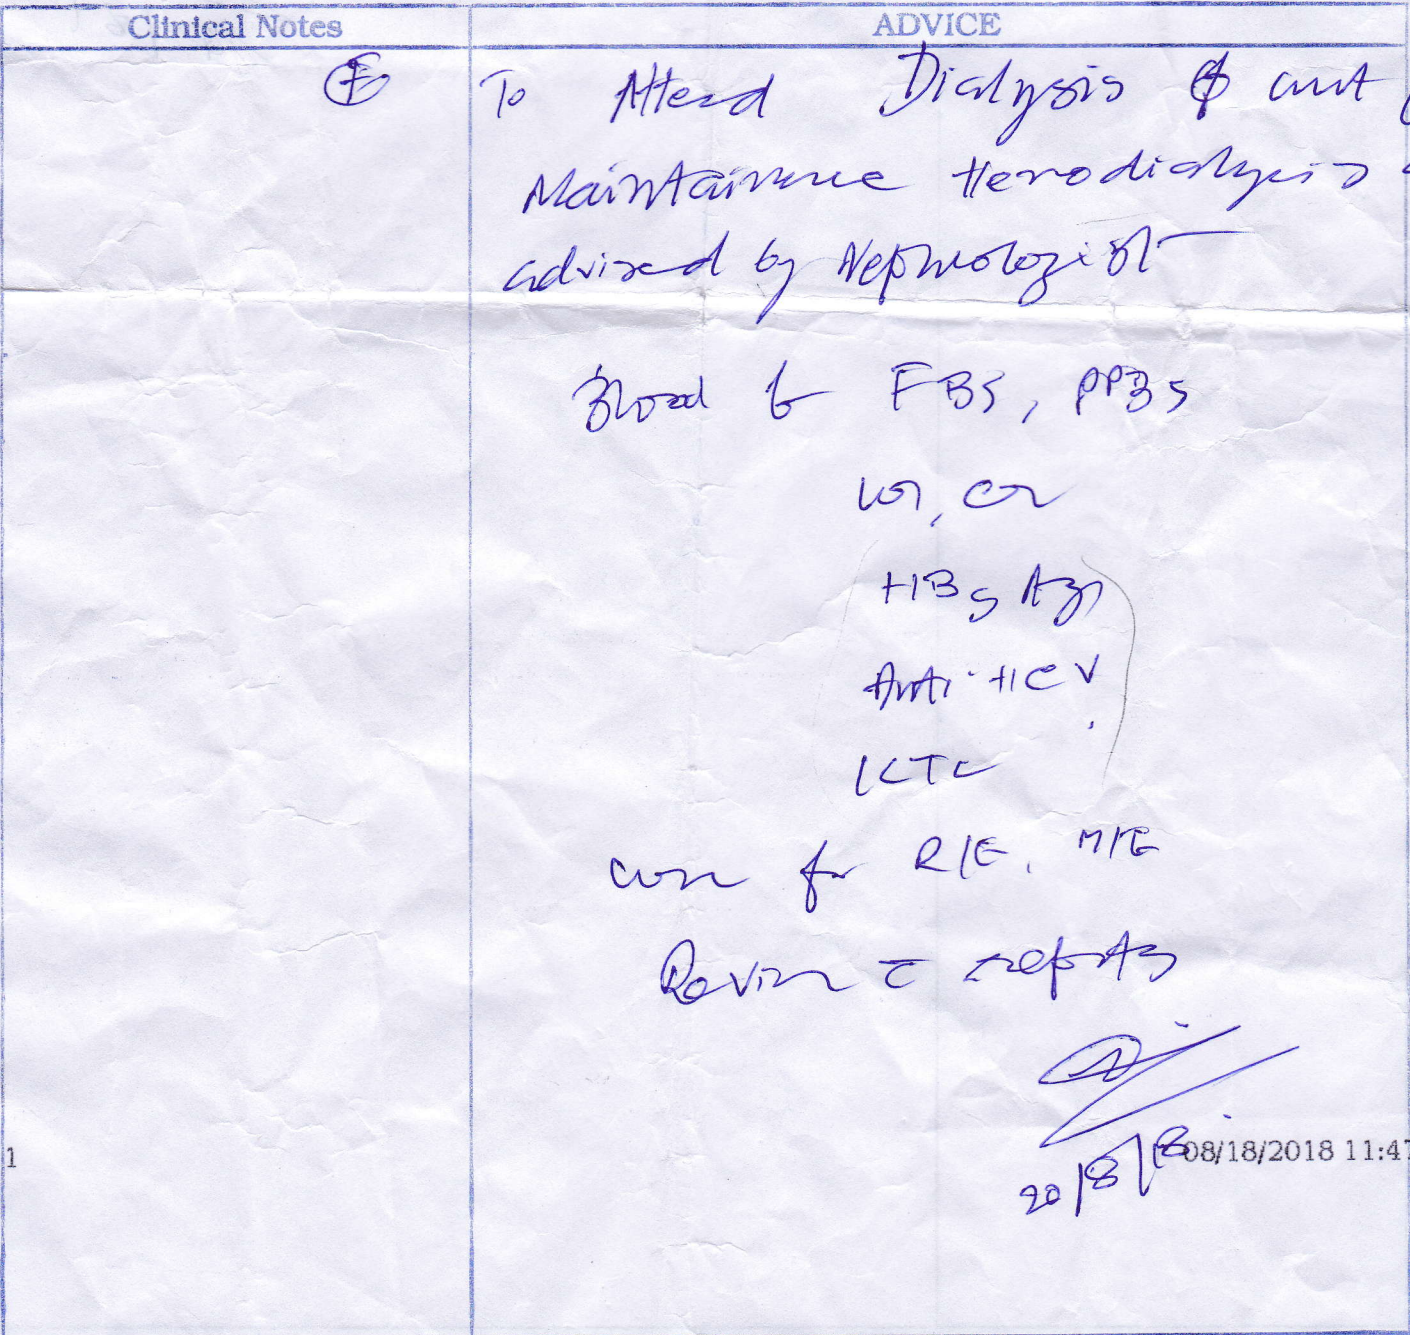 Clinical Notes
ADVICE
To Attend Dialysis unit
Maintainence Hemodialysis
advised by Nephrologist
Blood for FBS, PPBS
Ur, Cr
HBsAg
Anti-HCV
ICTC
Urine for R/E, M/E
Review c̄ reports
20/8/18
1
08/18/2018 11:47